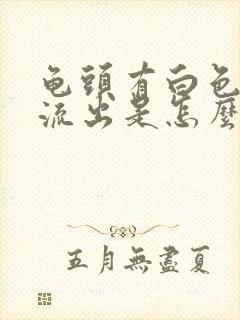 龟頭有白色
流出是怎麼
五月無盡夏